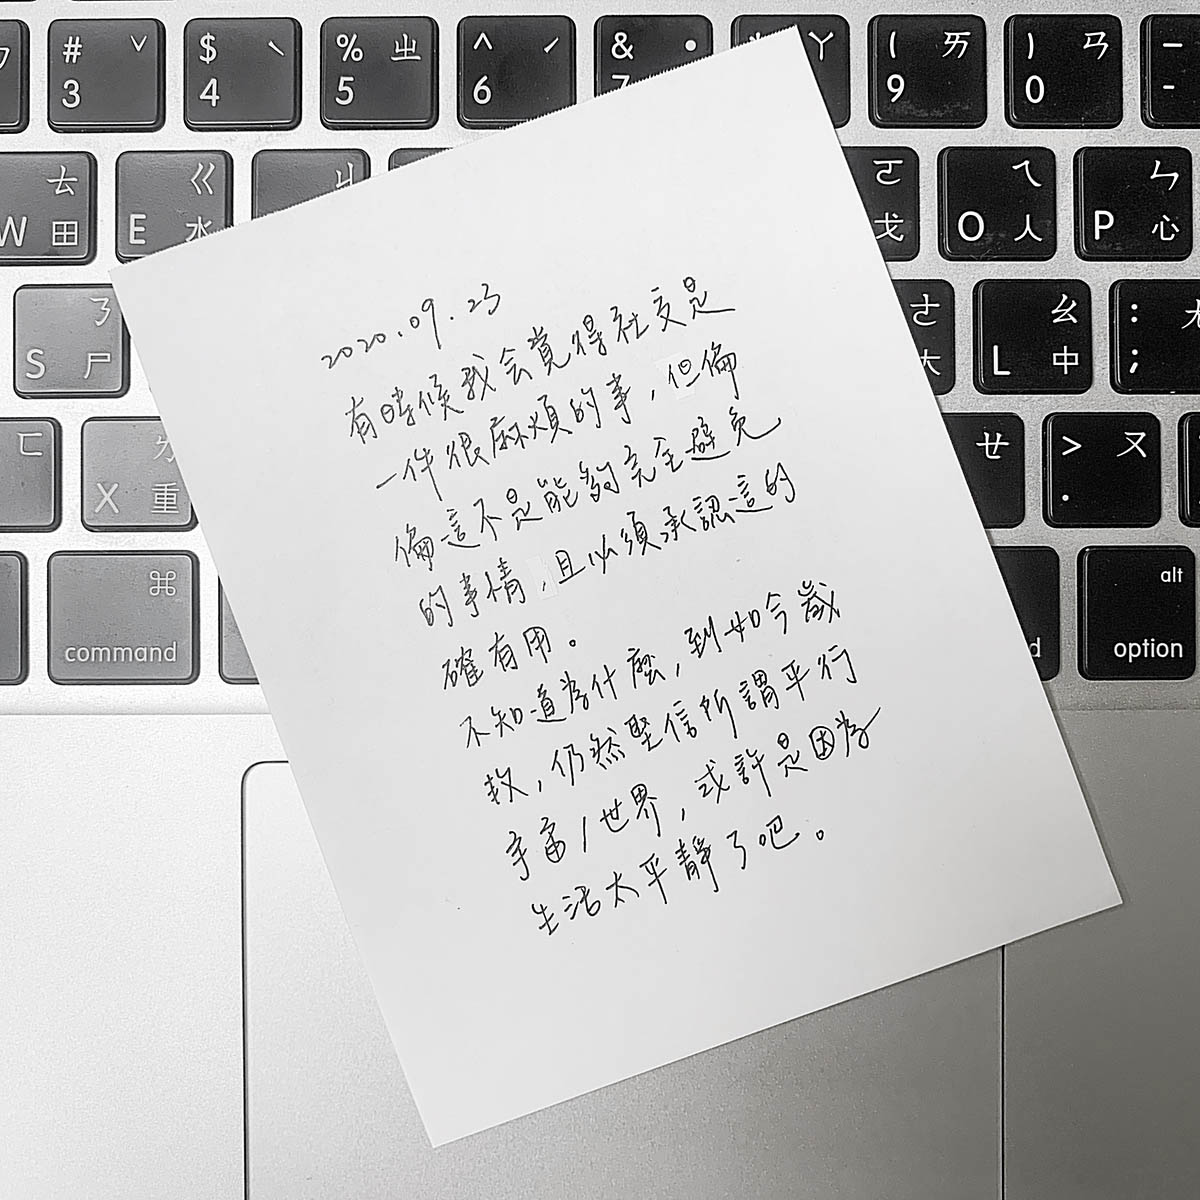 # ˇ 3
$ ˋ 4
% ㄓ 5
^ ˊ 6
& ˙
ㄚ
( ㄞ 9
) ㄢ 0
- -
ㄊ W 田
ㄍ E 水
ㄐ
ㄛ 戈
ㄟ O 人
ㄣ P 心
ㄋ S 尸
ㄜ 大
ㄠ L 中
: ;
ㄈ
ㄌ X 重
ㄝ
> ㄡ .
⌘
command
d
alt
option
2020.09.23
有時候我会覚得社交是
一件很麻煩的事,但偏
偏這不是能夠完全避免
的事情,且必須承認這的
確有用。
不知道為什麼,到如今歲
数,仍然堅信所謂平行
宇宙/世界,或許是因為
生活太平靜了吧。